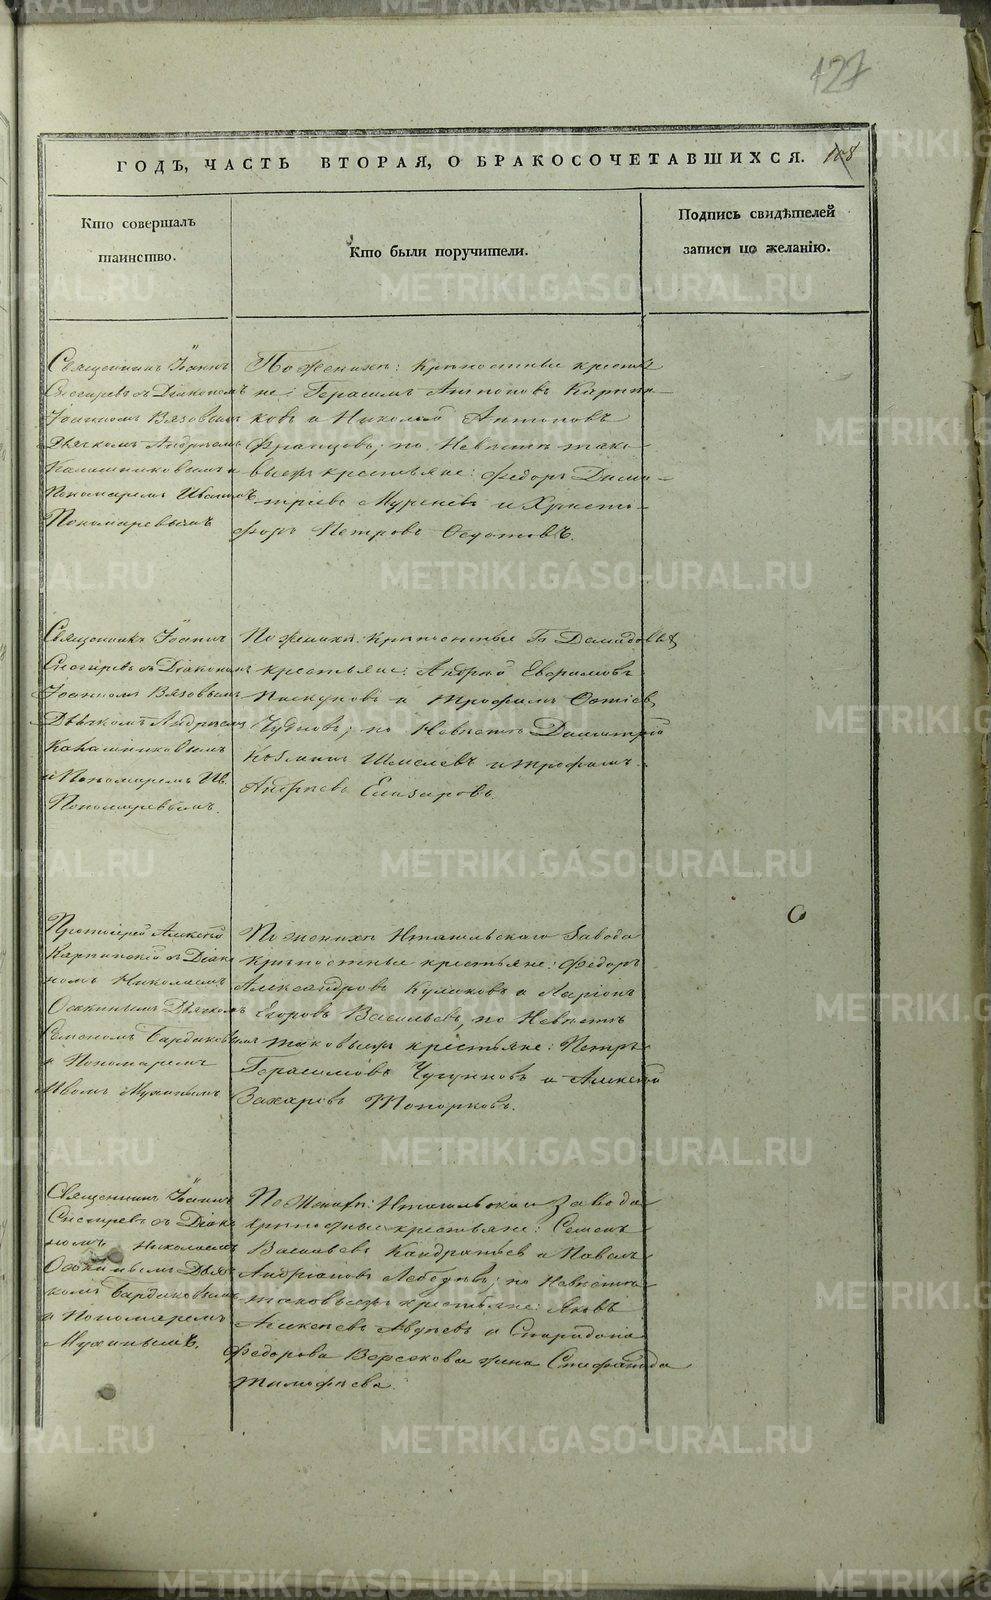 127
ГОДЪ, ЧАСТЬ ВТОРАЯ, О БРАКОСОЧЕТАВШИХСЯ.
108
Кто совершалъ
таинство.
Кто были поручители.
Подпись свидѣтелей
записи по желанію.
Священникъ Іоаннъ
Снегиревъ съ Діакономъ
Іоанномъ Вязовымъ
Дьячкомъ Андреемъ
Калашниковымъ и
Пономаремъ Иваномъ
Пономаревымъ
По Женихѣ: крѣпостные крестья
не: Герасимъ Антоновъ
ковъ и Николай Антоновъ
по Невѣстѣ тако
выежъ крестьяне: Федоръ Дими
тріевъ и Христо
форъ Петровъ
Священникъ Іоаннъ
Снегиревъ съ Діакономъ
Іоанномъ Вязовымъ
Дьячкомъ Андреемъ
Калашниковымъ
и Пономаремъ Ив.
Пономаревымъ.
По женихѣ: крѣпостные Г. Демидовыхъ
крестьяне: Андрей Ефремовъ
и Трофимъ
по Невѣстѣ Димитрій
Козминъ Шмелевъ и Трофимъ
Андреевъ Елизаровъ.
Протоіерей Алексей
Карпинскій съ Діако
номъ Николаемъ
Осокинымъ Дьячкомъ
Семеномъ Бардаковымъ
и Пономаремъ
Ивомъ Мухинымъ
По женихѣ Нтагильскаго Завода
крѣпостные крестьяне: Федоръ
Александровъ Куликовъ и Ларіонъ
Егоровъ Васильевъ, по Невѣстѣ
таковыежъ крестьяне: Петръ
Герасимовъ Чугунковъ и Алексей
Захаровъ Топорковъ.
Священникъ Іоаннъ
Снегиревъ съ Діако
номъ Николаемъ
Осокинымъ Дьяч
комъ Бардаковымъ
и Пономаремъ
Мухинымъ.
По Женихѣ: Нтагильскаго Завода
крѣпостные крестьяне: Семенъ
Васильевъ Кондратьевъ и Павелъ
Андріановъ Лебедевъ; по Невѣстѣ
таковыежъ крестьяне: Яковъ
Алексеевъ и Спиридона
Федорова жена Стефанида
Тимофеева.
METRIKI.GASO-URAL.RU